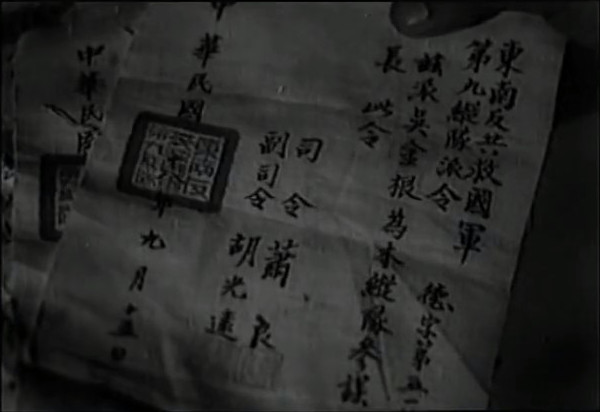 東南反共救國軍
第九縱隊派令
德宗第五一
茲派吳金根為本縱隊參謀
長 此令
司令 蕭良
副司令 胡光遠
中華民國 年九月十五日
中華民國